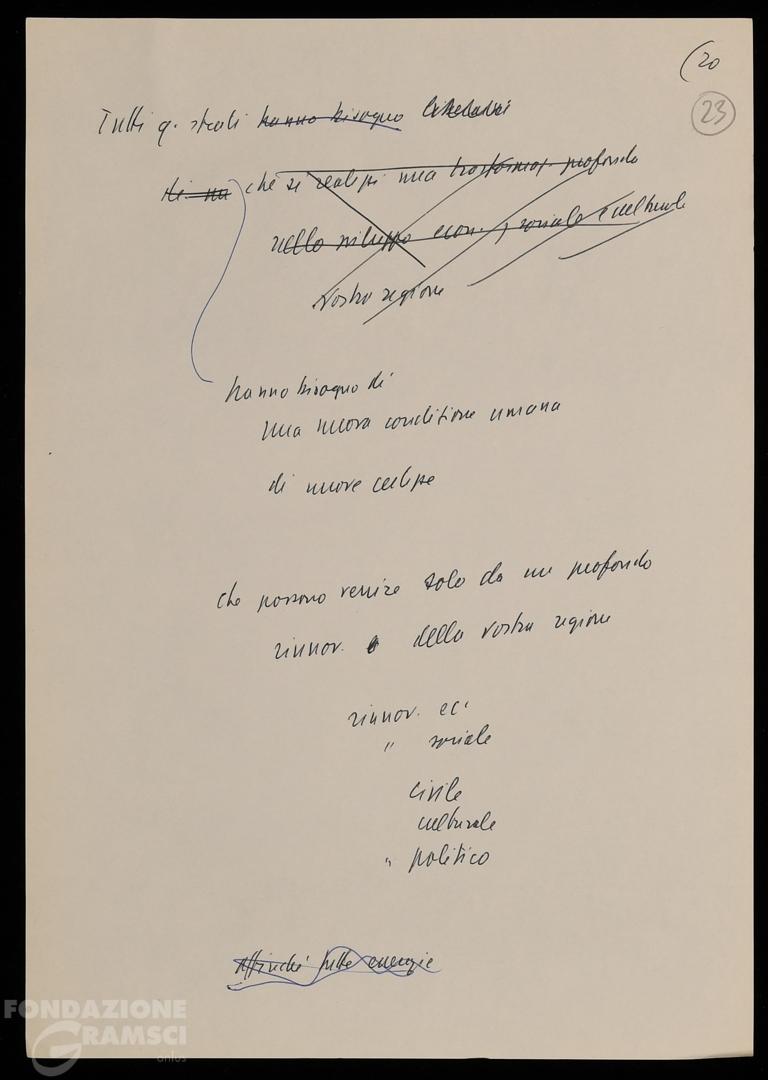 (20
23
Tutti q. strati hanno bisogno
di una che si realizzi una trasformaz. profonda
nello sviluppo econ., sociale e culturale
vostra regione
hanno bisogno di
una nuova condizione umana
di nuove
che possono venire solo da un profondo
rinnov. della vostra regione
rinnov. ec.
" sociale
civile
culturale
" politico
Affinché tutte energie
FONDAZIONE
GRAMSCI
onlus